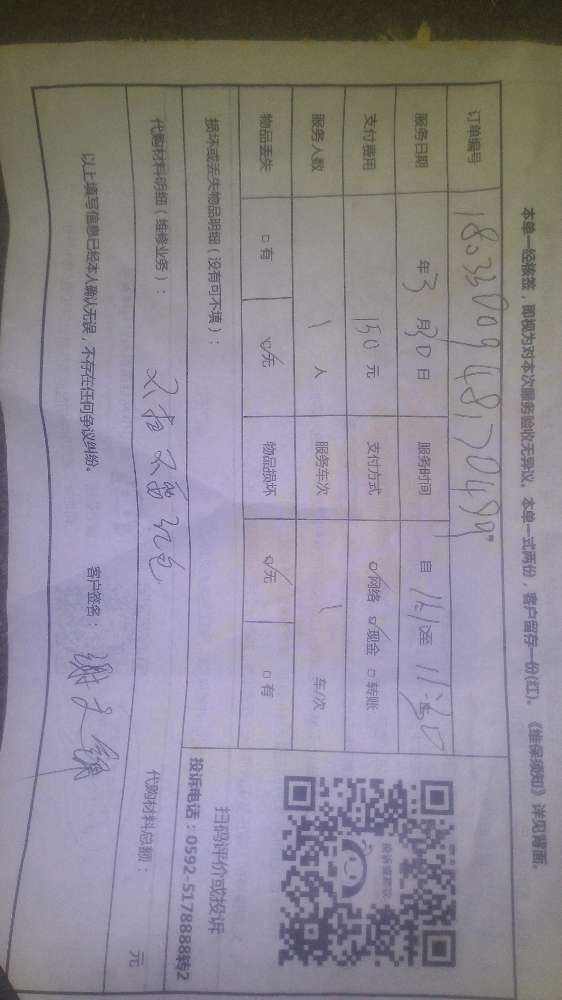 本单一经核签，即视为对本次服务验收无异议。本单一式两份，客户留存一份(红)。《维保须知》详见背面。
订单编号
服务日期 年3月30日 服务时间 自 11:1 至
支付费用 150元 支付方式 网络 现金 转账
服务人数 1 人 服务车次 1 车/次
物品丢失 有 无 物品损坏 无 有
损坏或丢失物品明细（没有可不填）：
扫码评价或投诉
投诉电话：0592-5178888转2
代购材料明细（维修业务）： 代购材料总额： 元
以上填写信息已经本人确认无误，不存在任何争议纠纷。 客户签名：